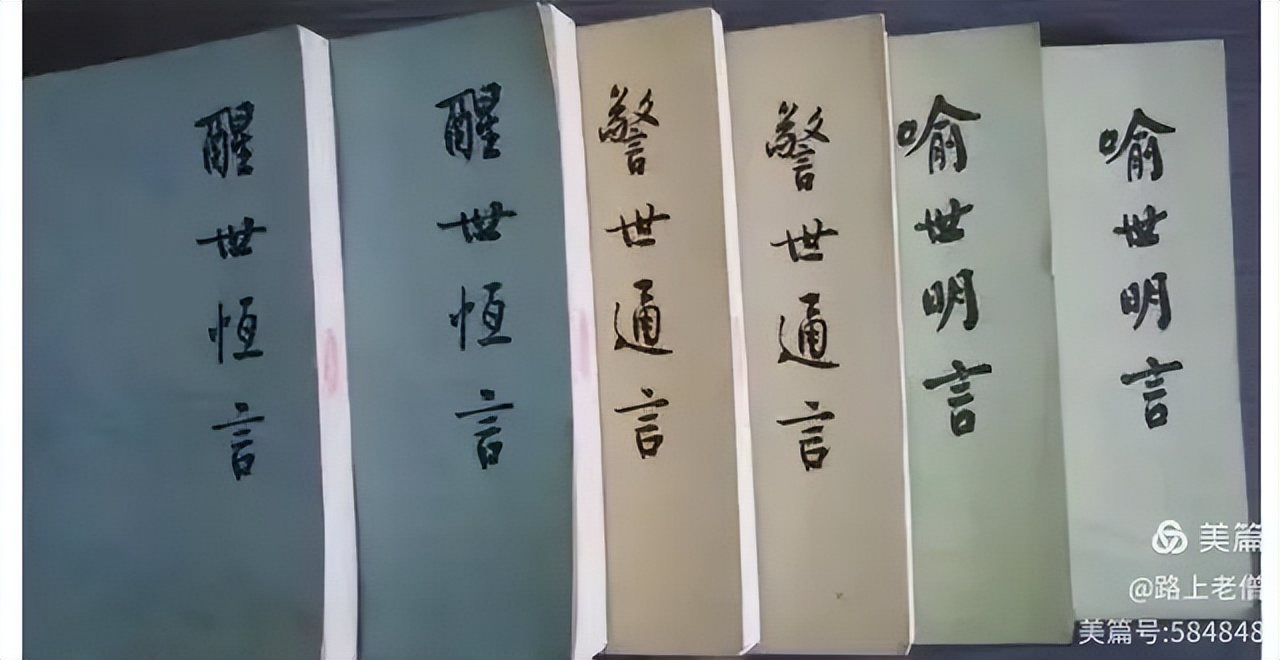 醒世恆言
醒世恆言
警世通言
警世通言
喻世明言
喻世明言
美篇
@路上老僧
美篇号:584848